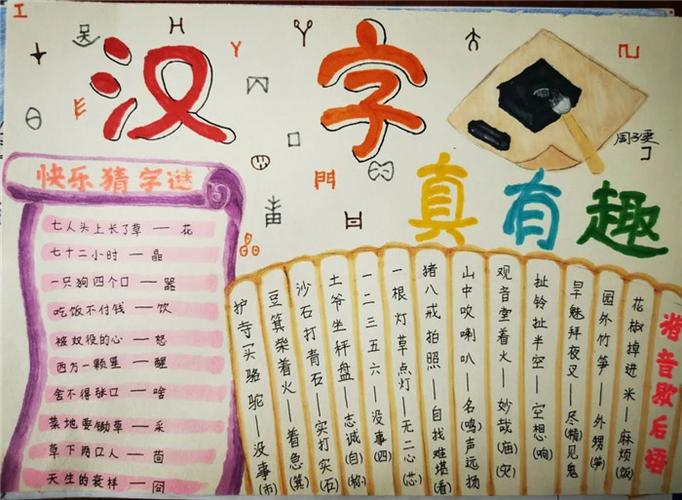 汉字
真有趣
快乐猜字谜
七人头上长了草 — 花
七十二小时 — 晶
一只狗四个口 — 器
吃饭不付钱 — 饮
被奴役的心 — 怒
西方一颗星 — 醒
舍不得张口 — 啥
菜地要锄草 — 采
草下两口人 — 茴
天生的衰样 — 囧
谐音歇后语
花椒掉进米—麻烦(饭)
园外竹笋—外甥(笋)
旱魃拜夜叉—尽(精)见鬼
扯铃扯半空—空想(响)
观音堂着火—妙哉(庙)(灾)
山中吹喇叭—名(鸣)声远扬
猪八戒拍照—自找难堪(看)
一根灯草点灯—无二心(芯)
一二三五六—没事(四)
土爷坐秤盘—志诚(自)(称)
沙石打青石—实打实(石)
豆箕柴着火—着急(箕)
护寺一头骆驼—没事(市)